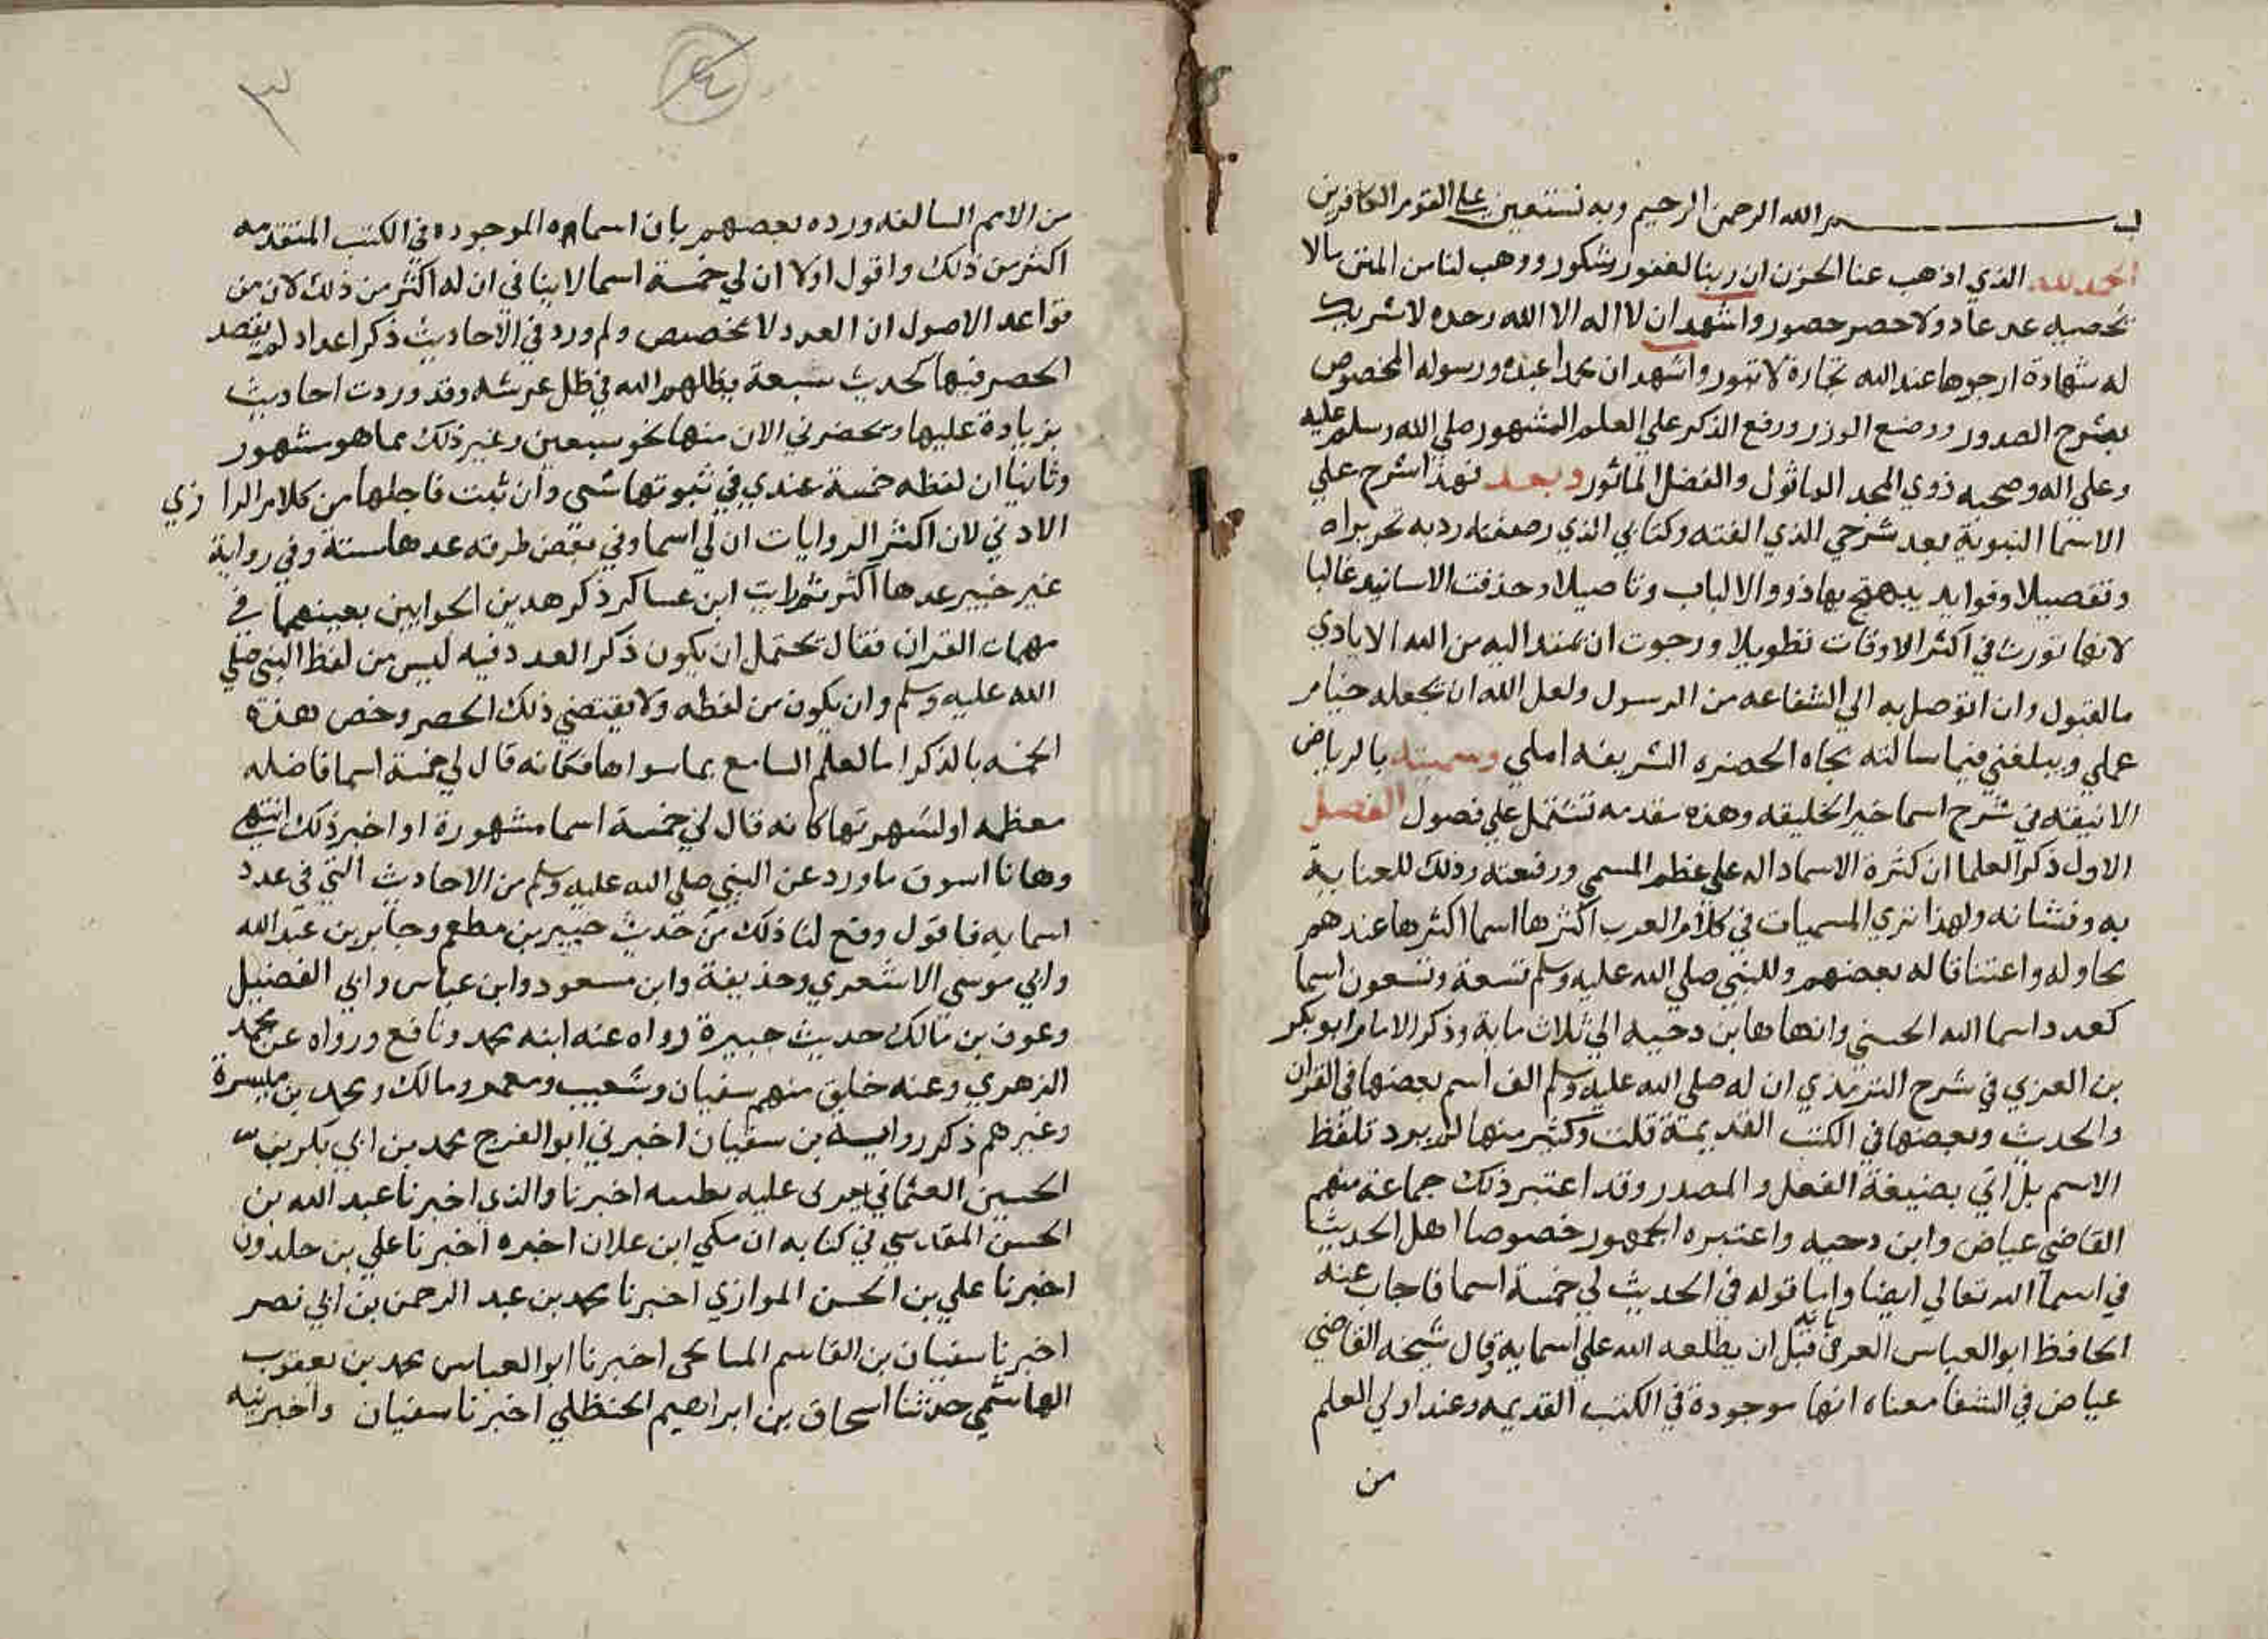 بسم الله الرحمن الرحيم وبه نستعين على القوم الكافرين
الحمد لله الذي اذهب عنا الحزن ان ربنا لغفور شكور ووهب لنا من المنن ما لا
تحصيه عد عاد ولا حصر حصور واشهد ان لا اله الا الله وحده لا شريك
له شهادة ارجوها عند الله تجارة لا تبور واشهد ان محمدا عبده ورسوله المخصوص
بشرح الصدور ووضع الوزر ورفع الذكر علي العلم المشهور صلي الله وسلم عليه
وعلي اله وصحبه ذوي المجد الماثول والفضل الماثور وبعد فهذا شرح علي
الاسما النبوية بعد شرحي الذي الفته وكتابي الذي رصفته زدته تحريرا
وتفصيلا وفوايد يبهج بها ذووا الالباب وتاصيلا وحذفت الاسانيد غالبا
لانها تورث في اكثر الاوقات تطويلا ورجوت ان تمتد اليه من الله الايادي
بالقبول وان اتوصل به الي الشفاعه من الرسول ولعل الله ان يجعله ختام
عملي ويبلغني فيما سالته بجاه الحضره الشريفه املي وسميته بالرياض
الانيقه في شرح اسما خير الخليقه وهذه مقدمه تشتمل علي فصول الفصل
الاول ذكر العلما ان كثرة الاسما داله علي عظم المسمي ورفعته وذلك للعناية
به وبشانه ولهذا تري المسميات في كلام العرب اكثرها اسما اكثرها عندهم
محاوله واعتنا قاله بعضهم وللنبي صلي الله عليه وسلم تسعة وتسعون اسما
كعدد اسما الله الحسني وانهاها ابن دحيه الي ثلاث ماية وذكر الامام ابو بكر
بن العربي في شرح الترمذي ان له صلي الله عليه وسلم الف اسم بعضها في القران
والحديث وبعضها في الكتب القديمة قلت وكثير منها لم يرد بلفظ
الاسم بل اتي بصيغة الفعل والمصدر وقد اعتبر ذلك جماعة منهم
القاضي عياض وابن دحيه واعتبره الجمهور خصوصا اهل الحديث
في اسما الله تعالي ايضا واما قوله في الحديث لي خمسة اسما فاجاب عنه
الحافظ ابو العباس العزفي بانه قبل ان يطلعه الله علي اسمايه وقال شيخه القاضي
عياض في الشفا معناه انها موجودة في الكتب القديمه وعند اولي العلم
من
من الامم السالفه ورده بعضهم بان اسماه الموجوده في الكتب المتقدمه
اكثر من ذلك واقول اولا ان لي خمسة اسما لا ينافي ان له اكثر من ذلك لان من
قواعد الاصول ان العدد لا يخصص ولم ورد في الاحاديث ذكر اعداد لم يقصد
الحصر فيها كحديث سبعة يظلهم الله في ظل عرشه وقد وردت احاديث
بزيادة عليها ويحضرني الان منها نحو سبعين وغير ذلك مما هو مشهور
وثانيا ان لفظه خمسة عندي في ثبوتها شي وان ثبت فاجلها من كلام الرا وي
الادني لان اكثر الروايات ان لي اسما وفي بعض طرقه عدها ستة وفي رواية
غير جبير عدها اكثر ثم رايت ابن عساكر ذكر هذين الجوابين بعينهما في
مبهمات القران فقال يحتمل ان يكون ذكر العدد فيه ليس من لفظ النبي صلي
الله عليه وسلم وان يكون من لفظه ولا يقتضي ذلك الحصر وخص هذه
الخمسه بالذكر اما لعلم السامع بما سواها فكانه قال لي خمسة اسما فاضله
معظمه او لشهرتها كانه قال لي خمسة اسما مشهورة او اخير ذلك انتهي
وها انا اسوق ما ورد عن النبي صلي الله عليه وسلم من الاحاديث التي في عدد
اسمايه فاقول وقع لنا ذلك من حديث جبير بن مطعم وجابر بن عبد الله
وابي موسي الاشعري وحذيفة وابن مسعود وابن عباس وابي الفضيل
وعوف بن مالك حديث جبيرة رواه عنه ابنه محمد ونافع ورواه عن محمد
الزهري وعنه خلق منهم سفيان وشعيب ومعمر ومالك ومحمد بن ميسرة
وغيرهم ذكر رواية بن سفيان اخبرني ابو الفرج محمد بن ابي بكر بن
الحسين العثماني عليه بطيبه اخبرنا والدي اخبرنا عبد الله بن
الحسن المقدسي في كتابه ان مكي ابن علان اخبره اخبرنا علي بن خلدون
اخبرنا علي بن الحسن الموازي اخبرنا محمد بن عبد الرحمن بن ابي نصر
اخبرنا سفيان بن القاسم اخبرنا ابو العباس محمد بن يعقوب
الهاشمي حدثنا اسحاق بن ابراهيم الحنظلي اخبرنا سفيان واخبرنيه
٣
٤